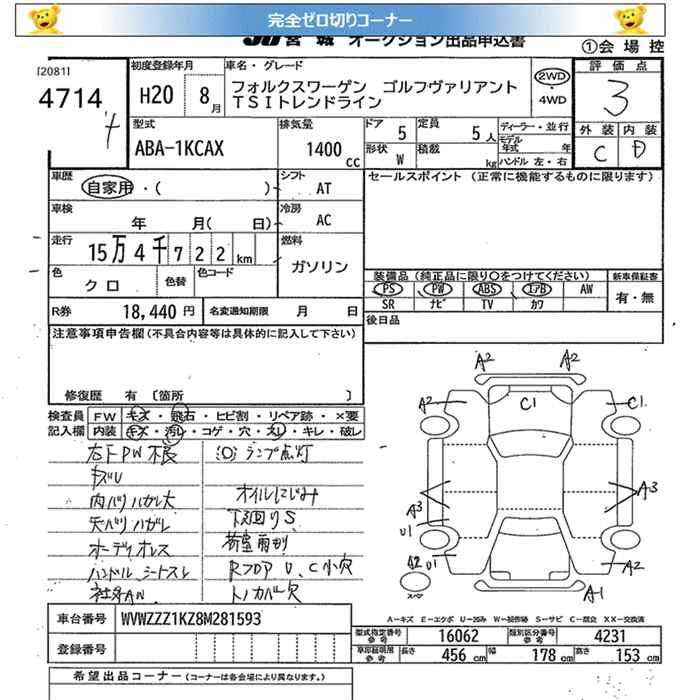 完全ゼロ切りコーナー
JU宮城 オークション出品申込書
①会場控
[2081]
4714
初度登録年月
H20 8月
車名・グレード
フォルクスワーゲン ゴルフヴァリアント
TSIトレンドライン
2WD
4WD
評価点
3
外装 内装
C D
型式
ABA-1KCAX
排気量
1400cc
ドア 5
定員 5人
形状 W
積載 kg
ディーラー・並行
モデル年式 年
ハンドル 左・右
車歴
自家用・( )
シフト AT
セールスポイント (正常に機能するものに限ります)
車検 年 月( 日)
冷房 AC
走行
15万4千722km
燃料
ガソリン
色 クロ
色替
色コード
R券 18,440円
名変通知期限 月 日
装備品 (純正品に限り○をつけてください)
新車保証書
PS PW ABS エアB AW
SR ナビ TV カワ
有・無
後日品
注意事項申告欄 (不具合内容等は具体的に記入して下さい)
修復歴 有 [箇所 ]
検査員 FW キズ・飛石・ヒビ割・リペア跡・×要
記入欄 内装 キズ・汚レ・コゲ・穴・スレ・キレ・破レ
右F PW 不良
(O) ランプ点灯
キズU
内バリハガレ大
オイルにじみ
天バリハガレ
下廻りS
オーディオレス
荷室雨もり
ハンドル シートスレ
RフロアU、C小穴
社外AW
トノカバー欠
A2 A2
A2 C1 C1
A3 A3
U1
A2 U1 A2
A-1
A-キズ E-エクボ U-凹み W-補修跡 S-サビ C-腐食 XX-交換済
車台番号 WVWZZZ1KZ8M281593
登録番号
型式指定番号 参考 16062
類別区分番号 参考 4231
車庫証明用 参考 長さ 456cm 幅 178cm 高さ 153cm
希望出品コーナー (コーナーは各会場により異なります。)